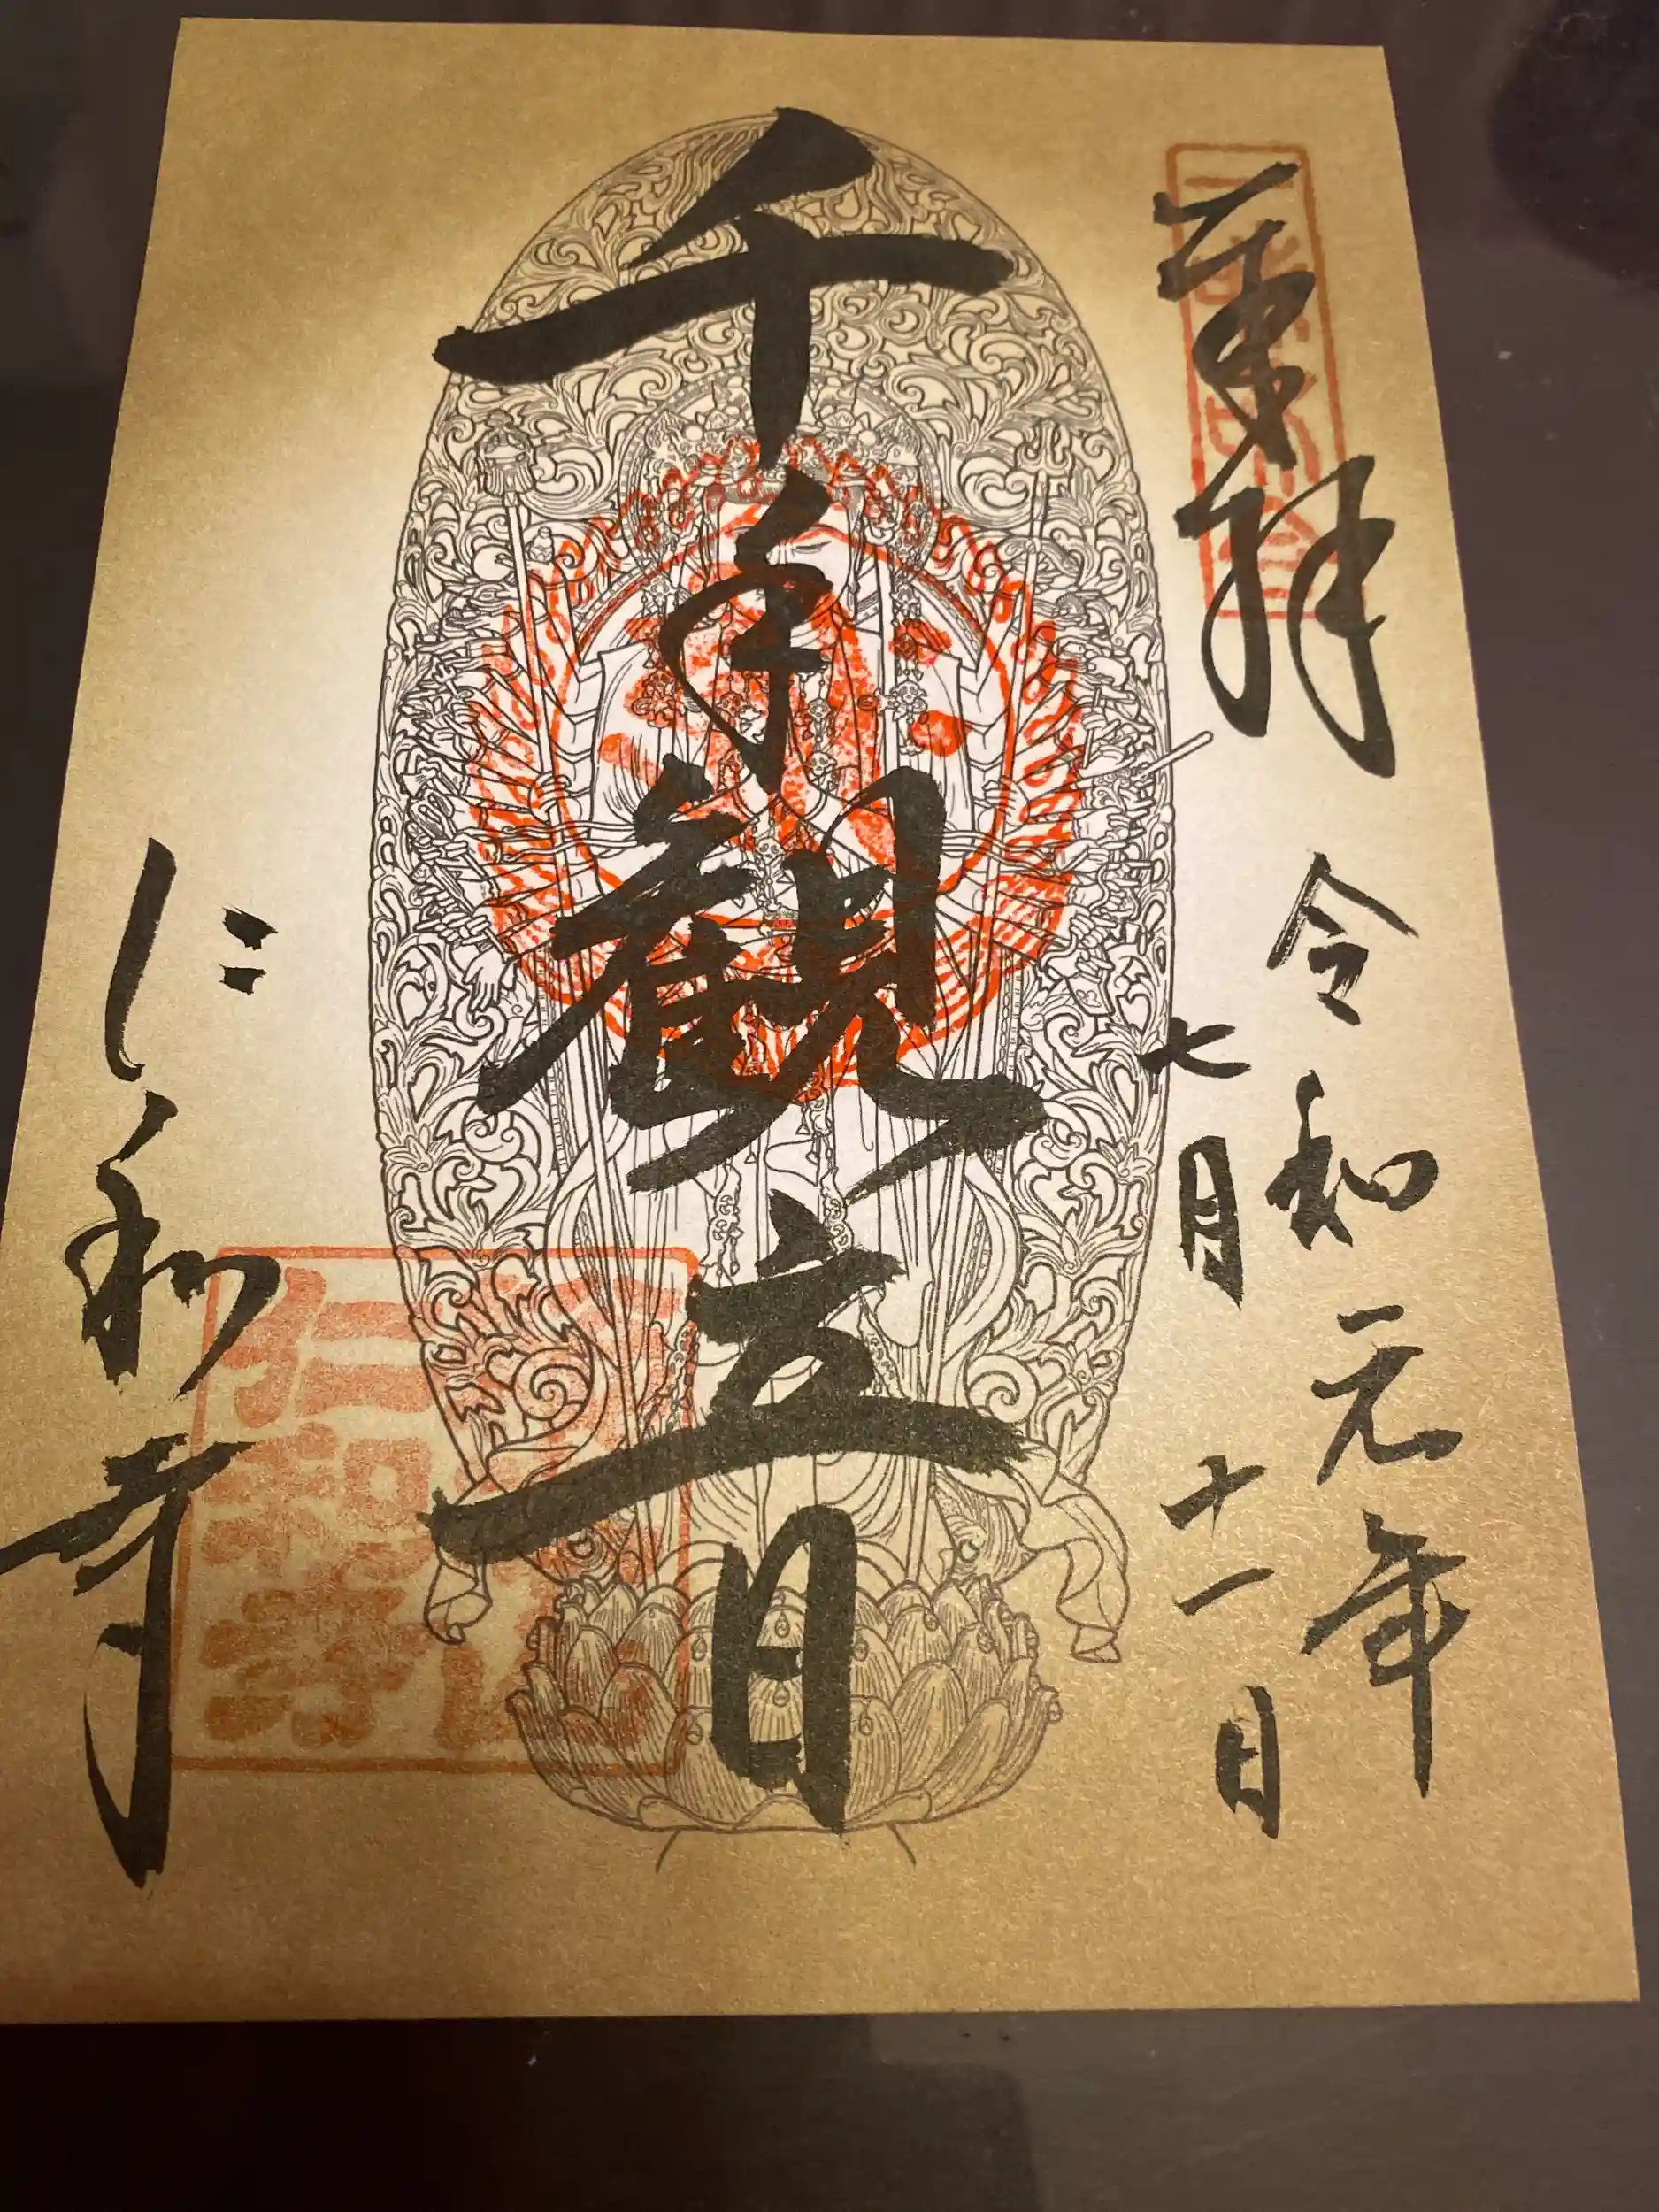 奉拝
令和元年
七月十一日
千手観音
仁和寺
仁和寺